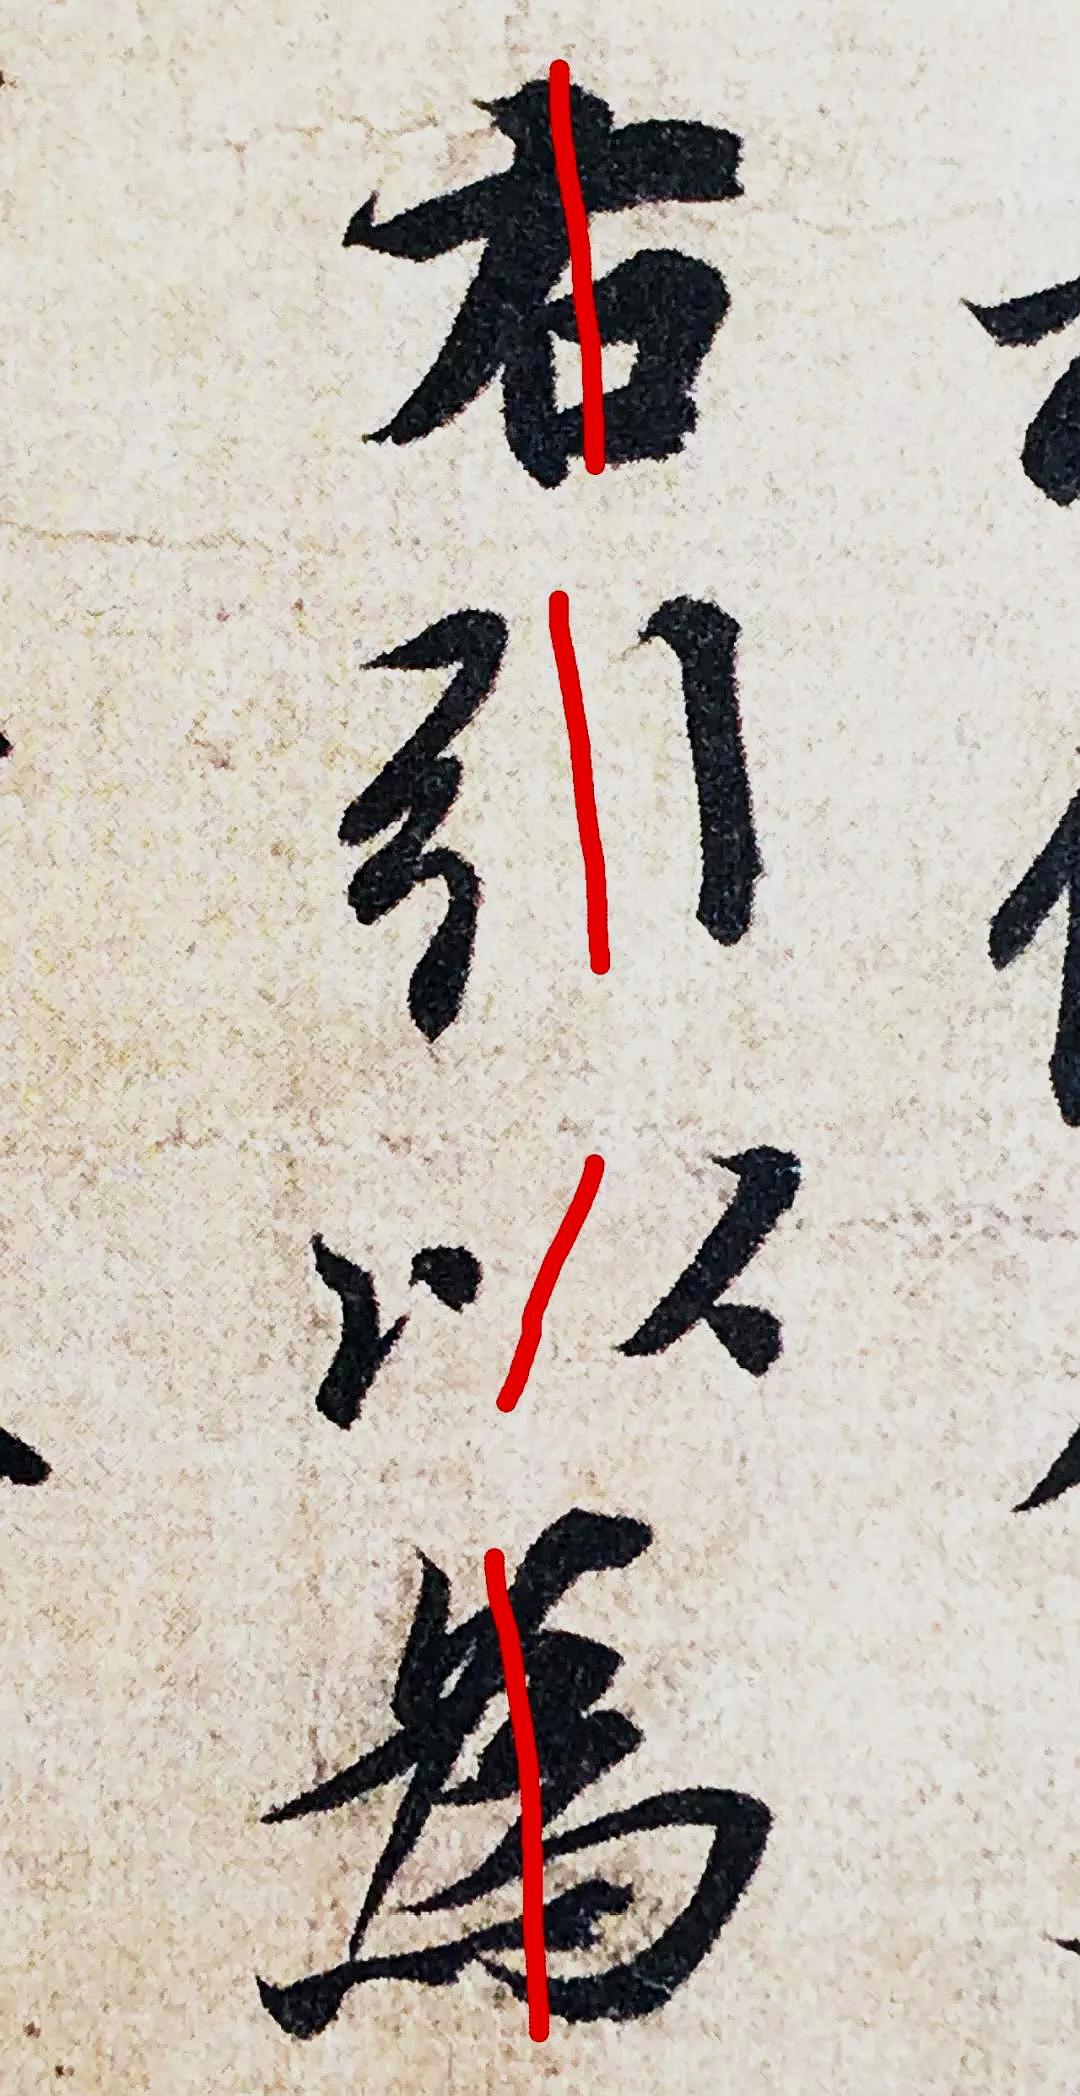 右引以為